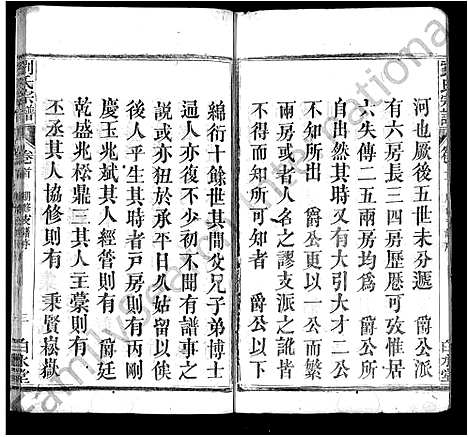 河也厥後五世未分遷　爵公派
有六房長三四房歷歷可攷惟居
六失傳二五兩房均爲　爵公所
自出然其時又有大引大才二公
不知所出　爵公更以一分而繁
如此或者人名之謬支派之訛皆
不可知　爵公以下
綿衍十餘世其間父兄子弟博士
通人亦復不少初不間有譜事之
說或亦狃於承平日久姑留以俟
後人乎生其時者戶房則有丙剛
慶玉兆甡其人經管則有　爵廷
乾盛兆松鼎三其人主蒙則有
丕丞其人協修則有　秉賢嶽嶽
劉氏宗譜
卷首
三
白水堂
familysearch international